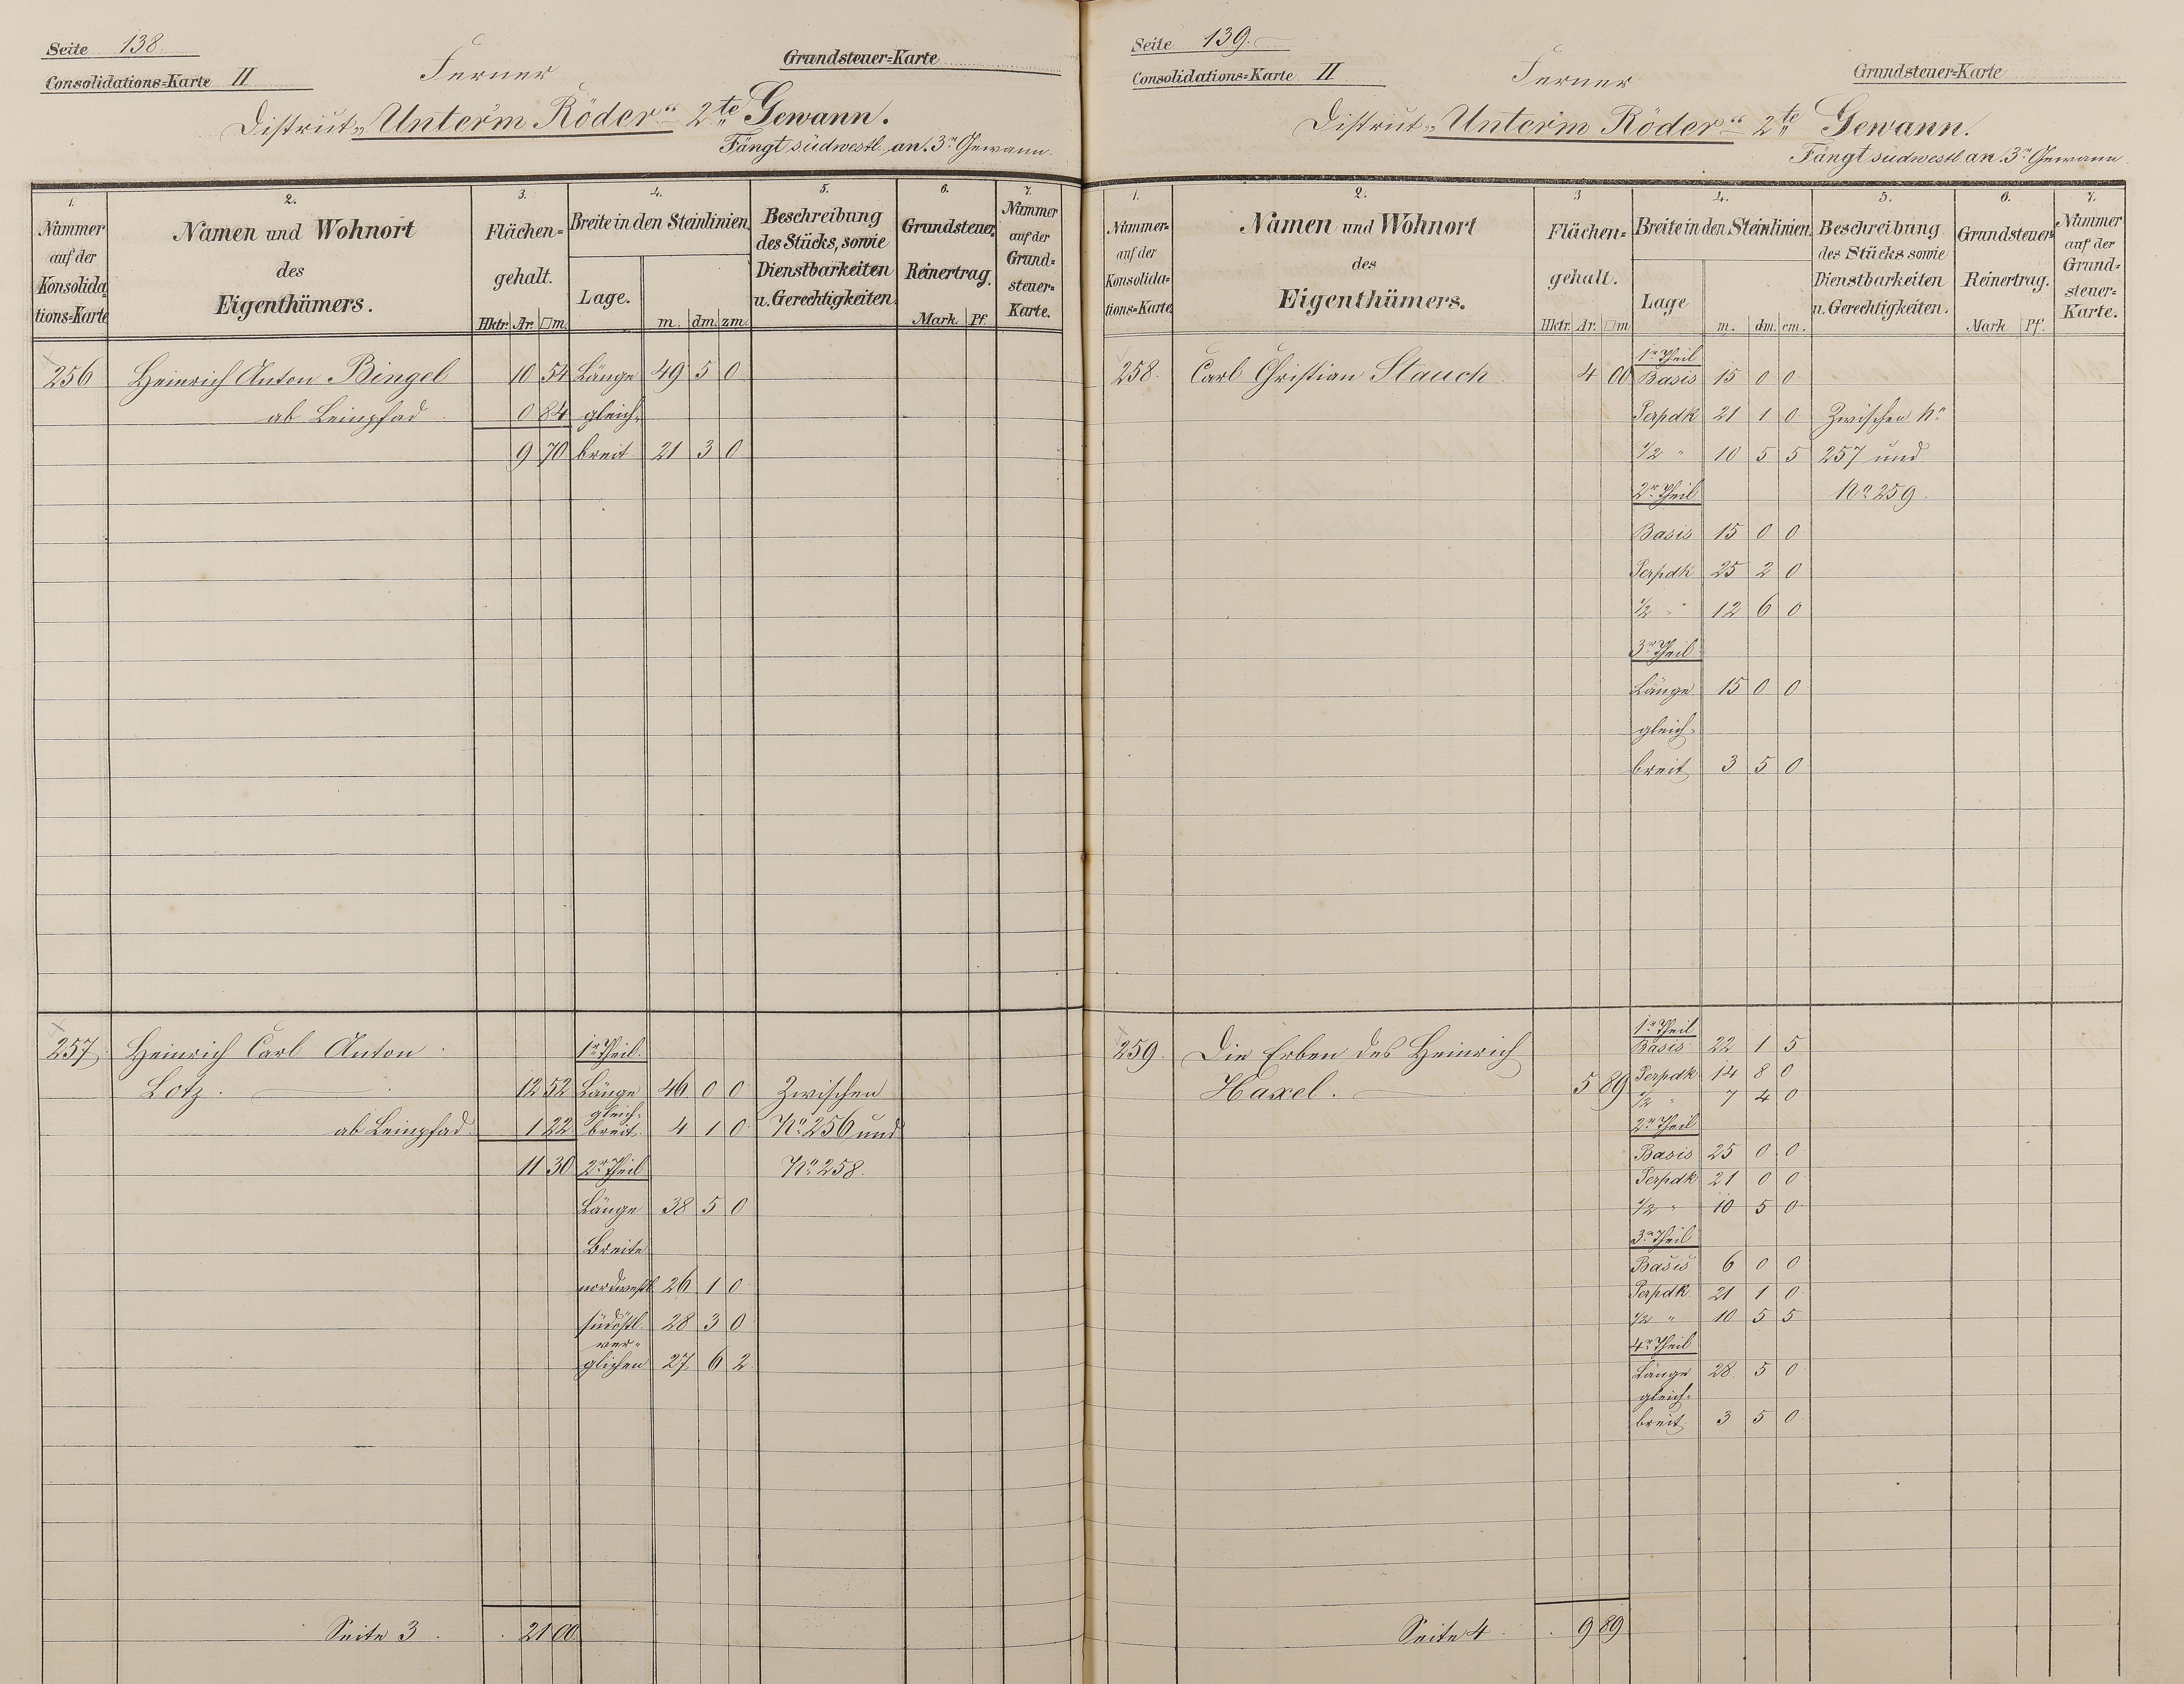 Seite 138.
Consolidations=Karte II
Ferner
Grundsteuer=Karte
District "Unter'm Röder" 2te Gewann.
Fängt südwestl. an. 3r Gewann.
1. 2. 3. 4. 5. 6. 7.
Nummer auf der Konsolida=tions=Karte
Namen und Wohnort
des
Eigenthümers.
Flächen=
gehalt.
Hktr. Ar. □m
Breite in den Steinlinien.
Lage. m. dm. zm.
Beschreibung
des Stücks, sowie
Dienstbarkeiten
u. Gerechtigkeiten.
Grundsteuer
Reinertrag.
Mark Pf.
Nummer
auf der
Grund=
steuer=
Karte.
256 Heinrich Anton Bingel 10 54 Länge 49 5 0
ab Leinpfad 0 84 gleich=
9 70 breit 21 3 0
257. Heinrich Carl Anton 1r Theil.
Lotz. 12 52 Länge 46 0 0 Zwischen
gleich=
ab Leinpfad 1 22 breit. 4 1 0 No 256 und
11 30 2r Theil No 258.
Länge 38 5 0
Breite
nordwestl. 26 1 0
südöstl. 28 3 0
ver=
glichen 27 6 2
Seite 3. 21 00
Seite 139.
Consolidations=Karte II
Ferner
Grundsteuer=Karte
District "Unter'm Röder" 2te Gewann.
Fängt südwestl. an. 3r Gewann
1. 2. 3 4. 5. 6. 7.
Nummer=
auf der
Konsolida=
tions=Karte
Namen und Wohnort
des
Eigenthümers.
Flächen=
gehalt.
Hktr. Ar. □m
Breite in den Steinlinien.
Lage m. dm. cm.
Beschreibung
des Stücks sowie
Dienstbarkeiten
u. Gerechtigkeiten.
Grundsteuer
Reinertrag.
Mark Pf.
Nummer
auf der
Grund=
steuer=
Karte.
1r Theil
258. Carl Christian Stauch 4 00 Basis 15 0 0
Perpdk 21 1 0 Zwischen No
1/2 " 10 5 5 257 und
2r Theil No 259.
Basis 15 0 0
Perpdk 25 2 0
1/2 " 12 6 0
3r Theil
Länge 15 0 0
gleich=
breit 3 5 0
1r Theil
259. Die Erben des Heinrich Basis 22 1 5
Haxel. 5 89 Perpdk 14 8 0
1/2 " 7 4 0
2r Theil
Basis 25 0 0
Perpdk 21 0 0
1/2 " 10 5 0
3r Theil
Basis 6 0 0
Perpdk 21 1 0
1/2 " 10 5 5
4r Theil
Länge 28. 5 0
gleich=
breit 3 5 0
Seite 4. 9 89